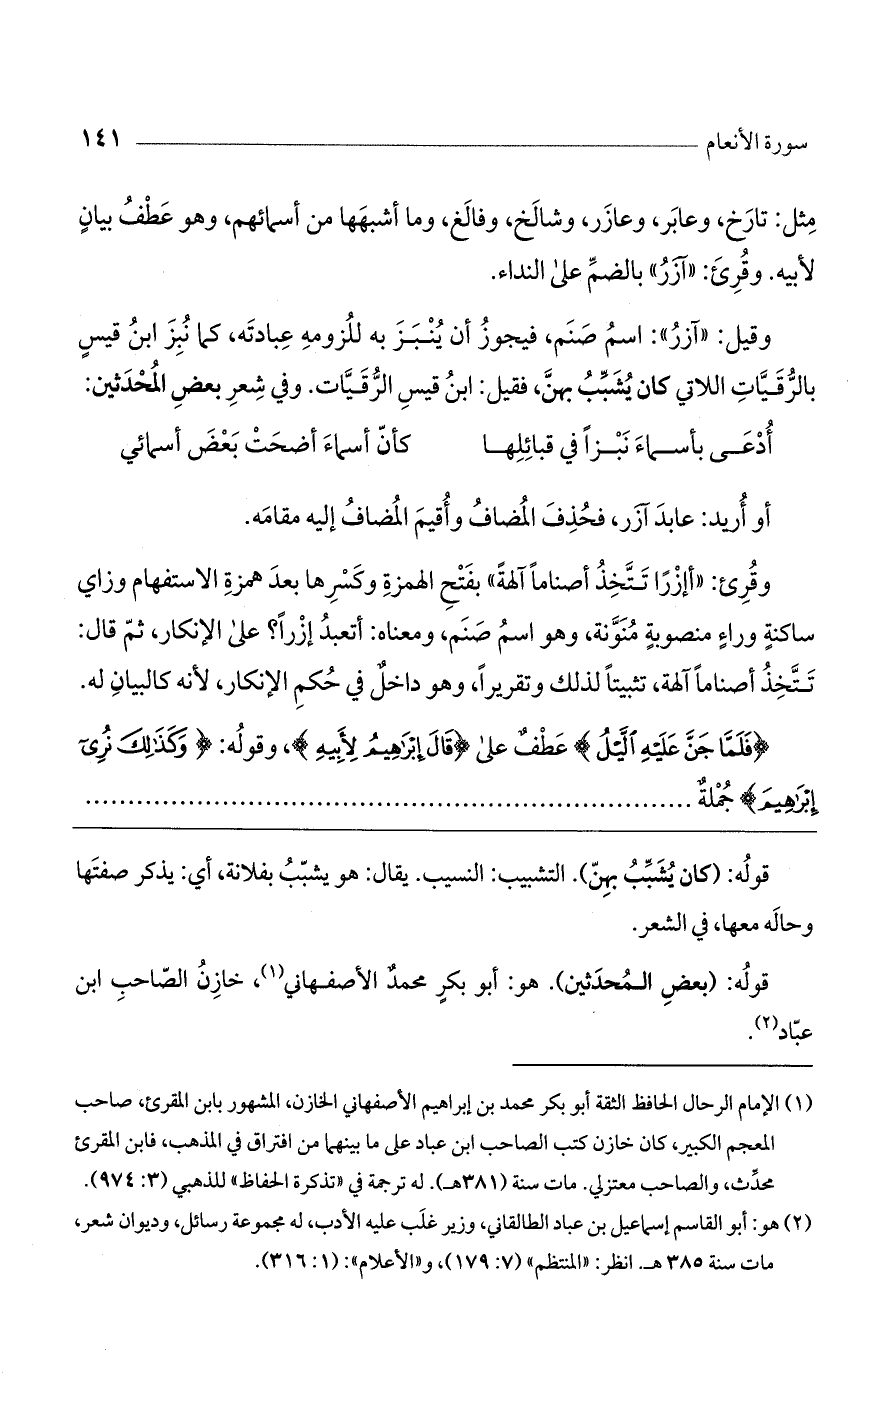 سورة الأنعام ١٤١
مِثل: تارَخ، وعابَر، وعازَر، وشالَخ، وفالَغ، وما أشبهَها من أسمائهم، وهو عَطْفُ بيانٍ
لأبيه. وقُرِئَ: «آزَرُ» بالضمِّ علىٰ النداء.
وقيل: «آزرُ»: اسمُ صَنَم، فيجوزُ أن يُنْبَـزَ به للُزومهِ عِبادتَه، كما نُبِزَ ابنُ قيسٍ
بالرُّقَـيَّاتِ اللاتي كان يُشَبِّبُ بهنَّ، فقيل: ابنُ قيسِ الرُّقَـيَّات. وفي شِعرِ بعضِ المُحْدَثين:
أُدْعَــى بأســماءَ نَبْــزاً في قبائِلِهــا كأنّ أسماءَ أضحَتْ بَعْضَ أسمائي
أو أُريد: عابدَ آزَر، فحُذِفَ المُضافُ وأُقيمَ المُضافُ إليه مقامَه.
وقُرِئ: «أإزْرًا تَـتَّخِذُ أصناماً آلهةً» بفَتْحِ الهمزةِ وكَسْرِها بعدَ همزةِ الاستفهام وزاي
ساكنةٍ وراءٍ منصوبةٍ مُنَوَّنة، وهو اسمُ صَنَم، ومعناه: أتعبدُ إزْراً؟ علىٰ الإنكار، ثمّ قال:
تَـتَّخِذُ أصناماً آلهة، تثبيتاً لذلك وتقريراً، وهو داخلٌ في حُكمِ الإنكار، لأنه كالبيانِ له.
﴿فَلَمَّا جَنَّ عَلَيْهِ ٱلَّيْلُ﴾ عَطْفٌ علىٰ ﴿قَالَ إِبْرَٰهِيمُ لِأَبِيهِ﴾، وقولُه: ﴿وَكَذَٰلِكَ نُرِىٓ
إِبْرَٰهِيمَ﴾ جُمْلةٌ ......................................................................
قولُه: (كان يُشَبِّبُ بهِنّ). التشبيب: النسيب. يقال: هو يشبّبُ بفلانة، أي: يذكر صفتَها
وحالَه معها، في الشعر.
قولُه: (بعضِ المُحدَثين). هو: أبو بكرٍ محمدٌ الأصفهاني(١)، خازِنُ الصّاحبِ ابن
عبّاد(٢).
(١) الإمام الرحال الحافظ الثقة أبو بكر محمد بن إبراهيم الأصفهاني الخازن، المشهور بابن المقرئ، صاحب
المعجم الكبير، كان خازن كتب الصاحب ابن عباد على ما بينهما من افتراق في المذهب، فابن المقرئ
محدِّث، والصاحب معتزلي. مات سنة (٣٨١هـ). له ترجمة في «تذكرة الحفاظ» للذهبي (٣: ٩٧٤).
(٢) هو: أبو القاسم إسماعيل بن عباد الطالقاني، وزير غلَب عليه الأدب، له مجموعة رسائل، وديوان شعر،
مات سنة ٣٨٥ هـ. انظر: «المنتظم» (٧: ١٧٩)، و«الأعلام»: (١: ٣١٦).